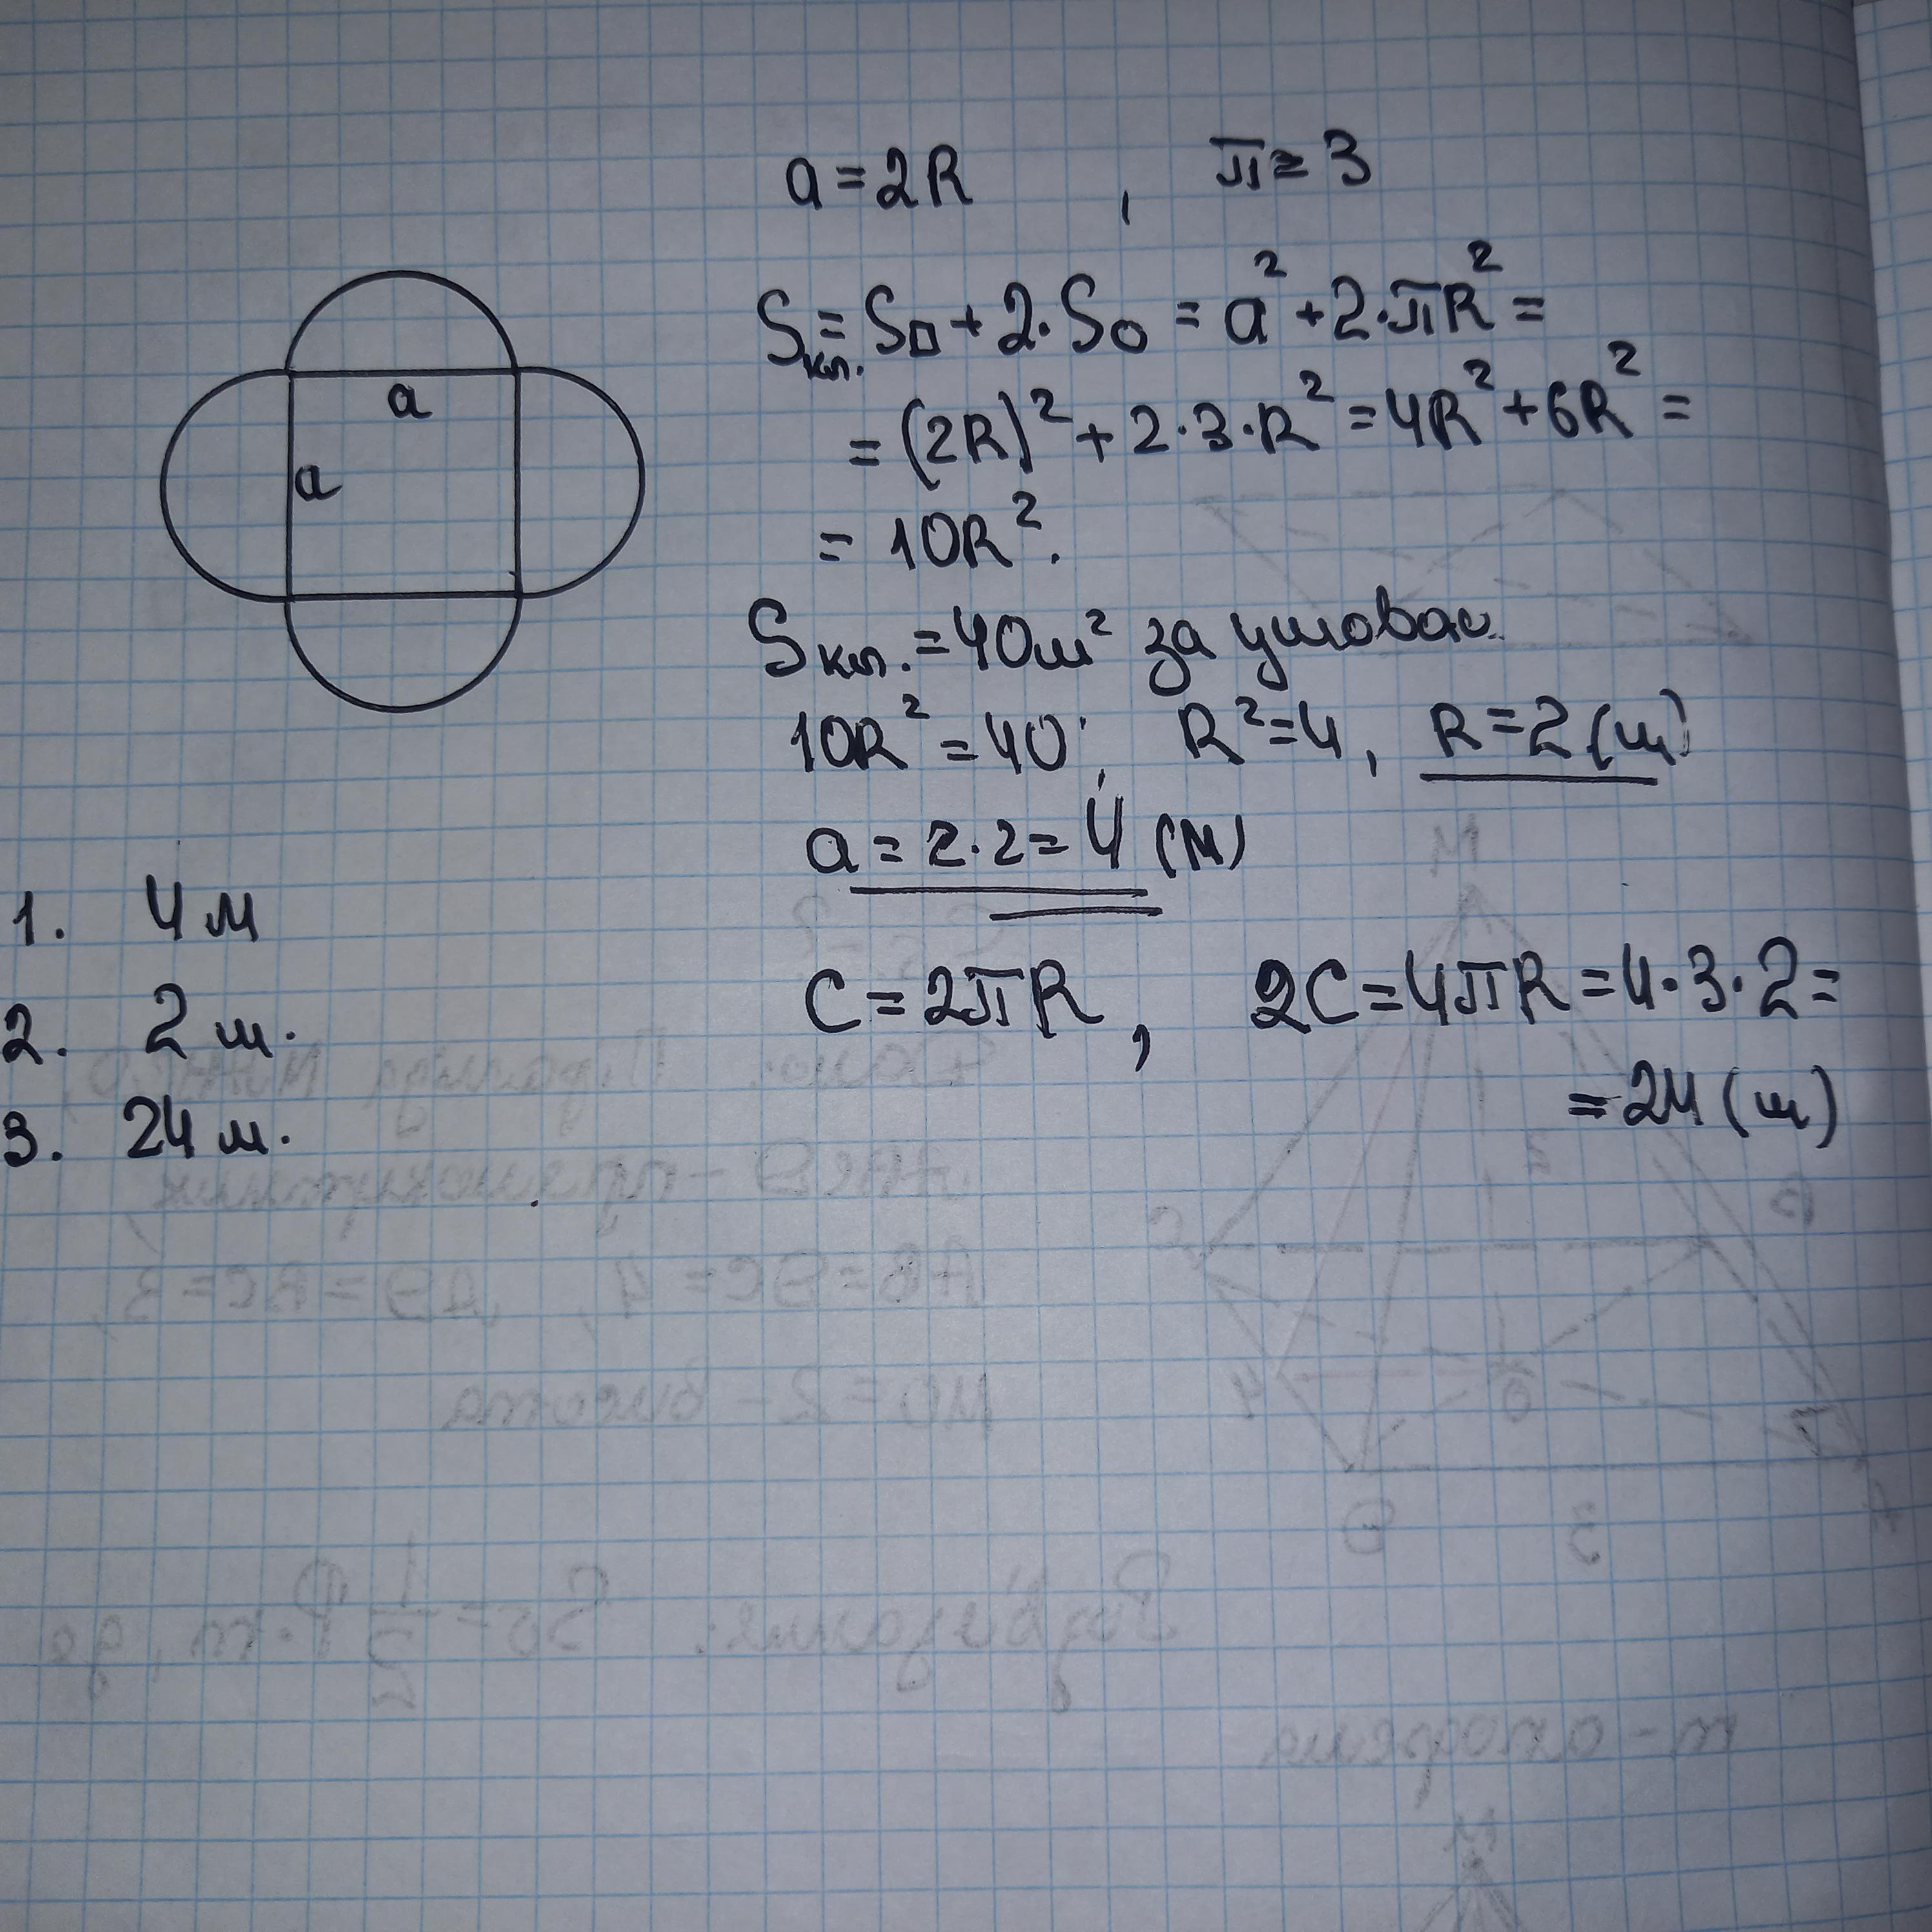 a = 2R , π ≈ 3
Sкл. = S□ + 2·S○ = a² + 2·πR² =
= (2R)² + 2·3·R² = 4R² + 6R² =
= 10R².
a
a
Sкл. = 40м² за умовою.
10R² = 40; R² = 4, R = 2 (м)
a = 2·2 = 4 (м)
1. 4 м
2. 2 м.
3. 24 м.
C = 2πR, 2C = 4πR = 4·3·2 =
= 24 (м)